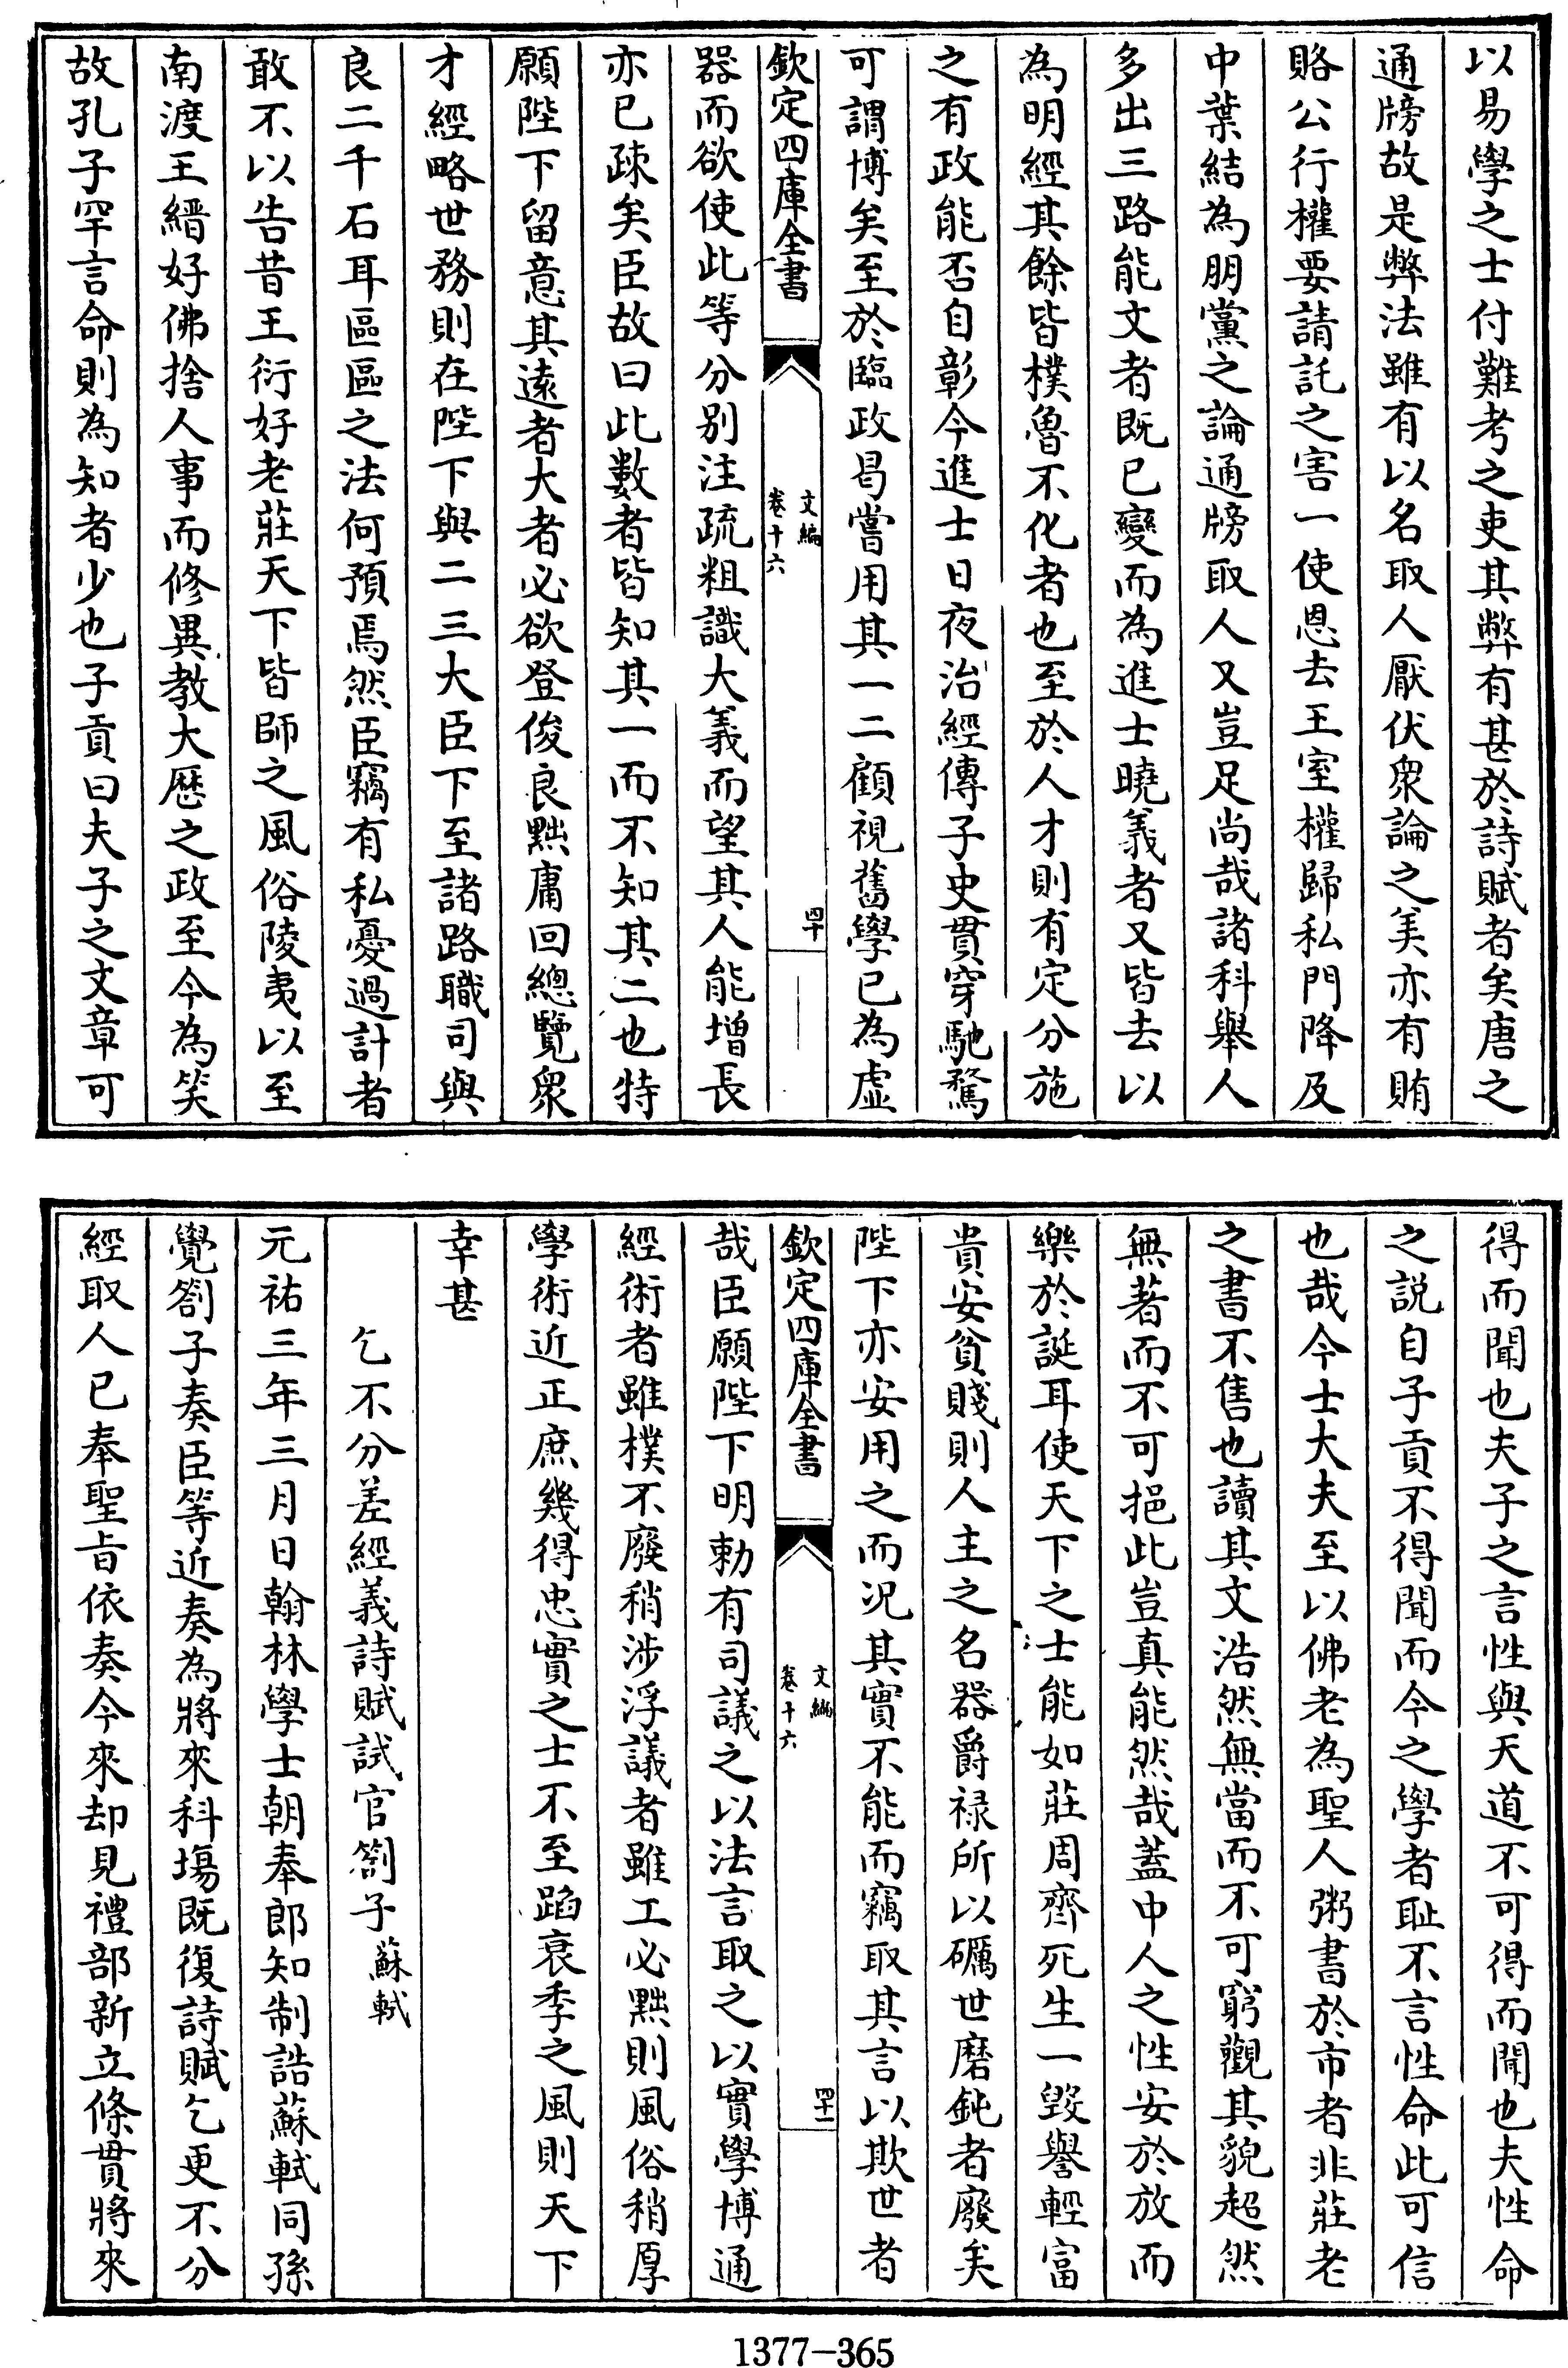 以易學之士付難考之吏其弊有甚於詩賦者矣唐之
通牓故是弊法雖有以名取人厭伏衆論之美亦有賄
賂公行權要請託之害一使恩去王室權歸私門降及
中葉結為朋黨之論通牓取人又豈足尚哉諸科舉人
多出三路能文者既已變而為進士曉義者又皆去以
為明經其餘皆樸魯不化者也至於人才則有定分施
之有政能否自彰今進士日夜治經傳子史貫穿馳騖
可謂博矣至於臨政曷嘗用其一二顧視舊學已為虛
欽定四庫全書
文編
卷十六
四十
器而欲使此等分別注疏粗識大義而望其人能增長
亦已疎矣臣故曰此數者皆知其一而不知其二也特
願陛下留意其遠者大者必欲登俊良黜庸回總覽衆
才經略世務則在陛下與二三大臣下至諸路職司與
良二千石耳區區之法何預焉然臣竊有私憂過計者
敢不以告昔王衍好老莊天下皆師之風俗陵夷以至
南渡王縉好佛捨人事而修異教大歷之政至今為笑
故孔子罕言命則為知者少也子貢曰夫子之文章可
得而聞也夫子之言性與天道不可得而聞也夫性命
之說自子貢不得聞而今之學者恥不言性命此可信
也哉今士大夫至以佛老為聖人粥書於市者非莊老
之書不售也讀其文浩然無當而不可窮觀其貌超然
無著而不可挹此豈真能然哉蓋中人之性安於放而
樂於誕耳使天下之士能如莊周齊死生一毀譽輕富
貴安貧賤則人主之名器爵祿所以礪世磨鈍者廢矣
陛下亦安用之而况其實不能而竊取其言以欺世者
欽定四庫全書
文編
卷十六
四十一
哉臣願陛下明勅有司議之以法言取之以實學博通
經術者雖樸不廢稍涉浮議者雖工必黜則風俗稍厚
學術近正庶幾得忠實之士不至蹈衰季之風則天下
幸甚
乞不分差經義詩賦試官劄子蘇軾
元祐三年三月日翰林學士朝奉郎知制誥蘇軾同孫
覺劄子奏臣等近奏為將來科場既復詩賦乞更不分
經取人已奉聖旨依奏今來却見禮部新立條貫將來
1377-365